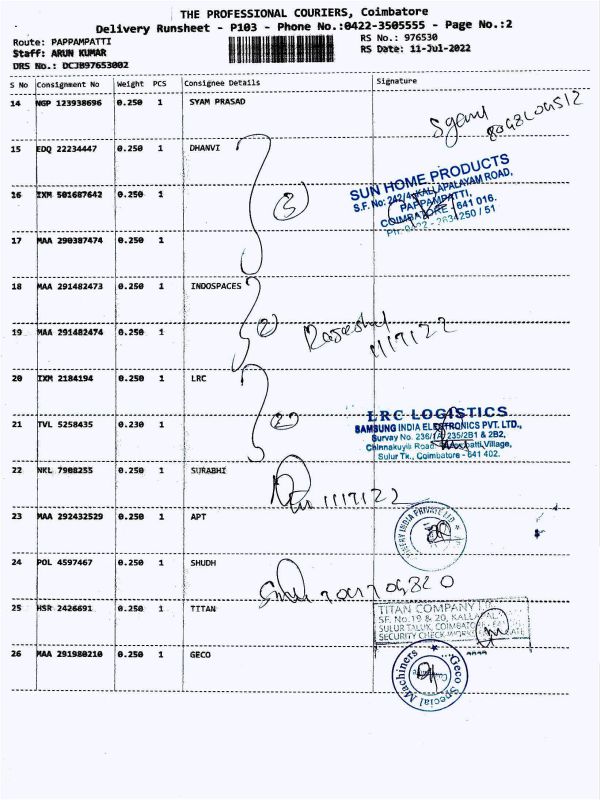 THE PROFESSIONAL COURIERS, Coimbatore
Delivery Runsheet - P103 - Phone No.:0422-3505555 - Page No.:2
Route: PAPPAMPATTI
RS No.: 976530
Staff: ARUN KUMAR
RS Date: 11-Jul-2022
DRS No.: DCJB97653002
S No Consignment No Weight PCS Consignee Details Signature
14 NGP 123938696 0.250 1 SYAM PRASAD
15 EDQ 22234447 0.250 1 DHANVI
SUN HOME PRODUCTS
S.F. No: 242/4, KALLAPALAYAM ROAD,
16 IXM 501687642 0.250 1 3
PAPPAMPATTI,
COIMBATORE - 641 016.
Ph: 0422 - 2634250 / 51
17 MAA 290387474 0.250 1
18 MAA 291482473 0.250 1 INDOSPACES
2
19 MAA 291482474 0.250 1
11/7/22
20 IXM 2184194 0.250 1 LRC
2
LRC LOGISTICS
21 TVL 5258435 0.230 1
SAMSUNG INDIA ELECTRONICS PVT. LTD.,
Survey No. 236/1A, 235/2B1 & 2B2,
Chinnakuyili Road Village,
Sulur Tk., Coimbatore - 641 402.
22 NKL 7908255 0.250 1 SURABHI
11/7/22
23 MAA 292432529 0.250 1 APT
INDIA PRIVATE LTD
24 POL 4597467 0.250 1 SHUDH
25 HSR 2426691 0.250 1 TITAN
TITAN COMPANY
SF. No.19 & 20, KALLAPAL
SULUR TALUK, COIMBATORE
SECURITY CHECK GATE
26 MAA 291980210 0.250 1 GECO
Geco Special Machiners